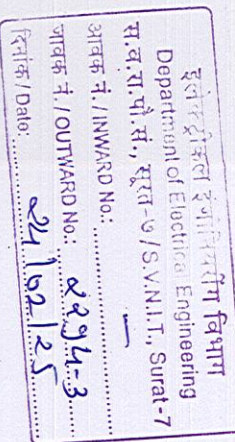 इलेक्ट्रीकल इंजीनियरींग विभाग
Department of Electrical Engineering
स.व.रा.प्रौ.सं., सूरत-७ / S.V.N.I.T., Surat-7
आवक नं. / INWARD No.:
जावक नं. / OUTWARD No.:
दिनांक / Date: